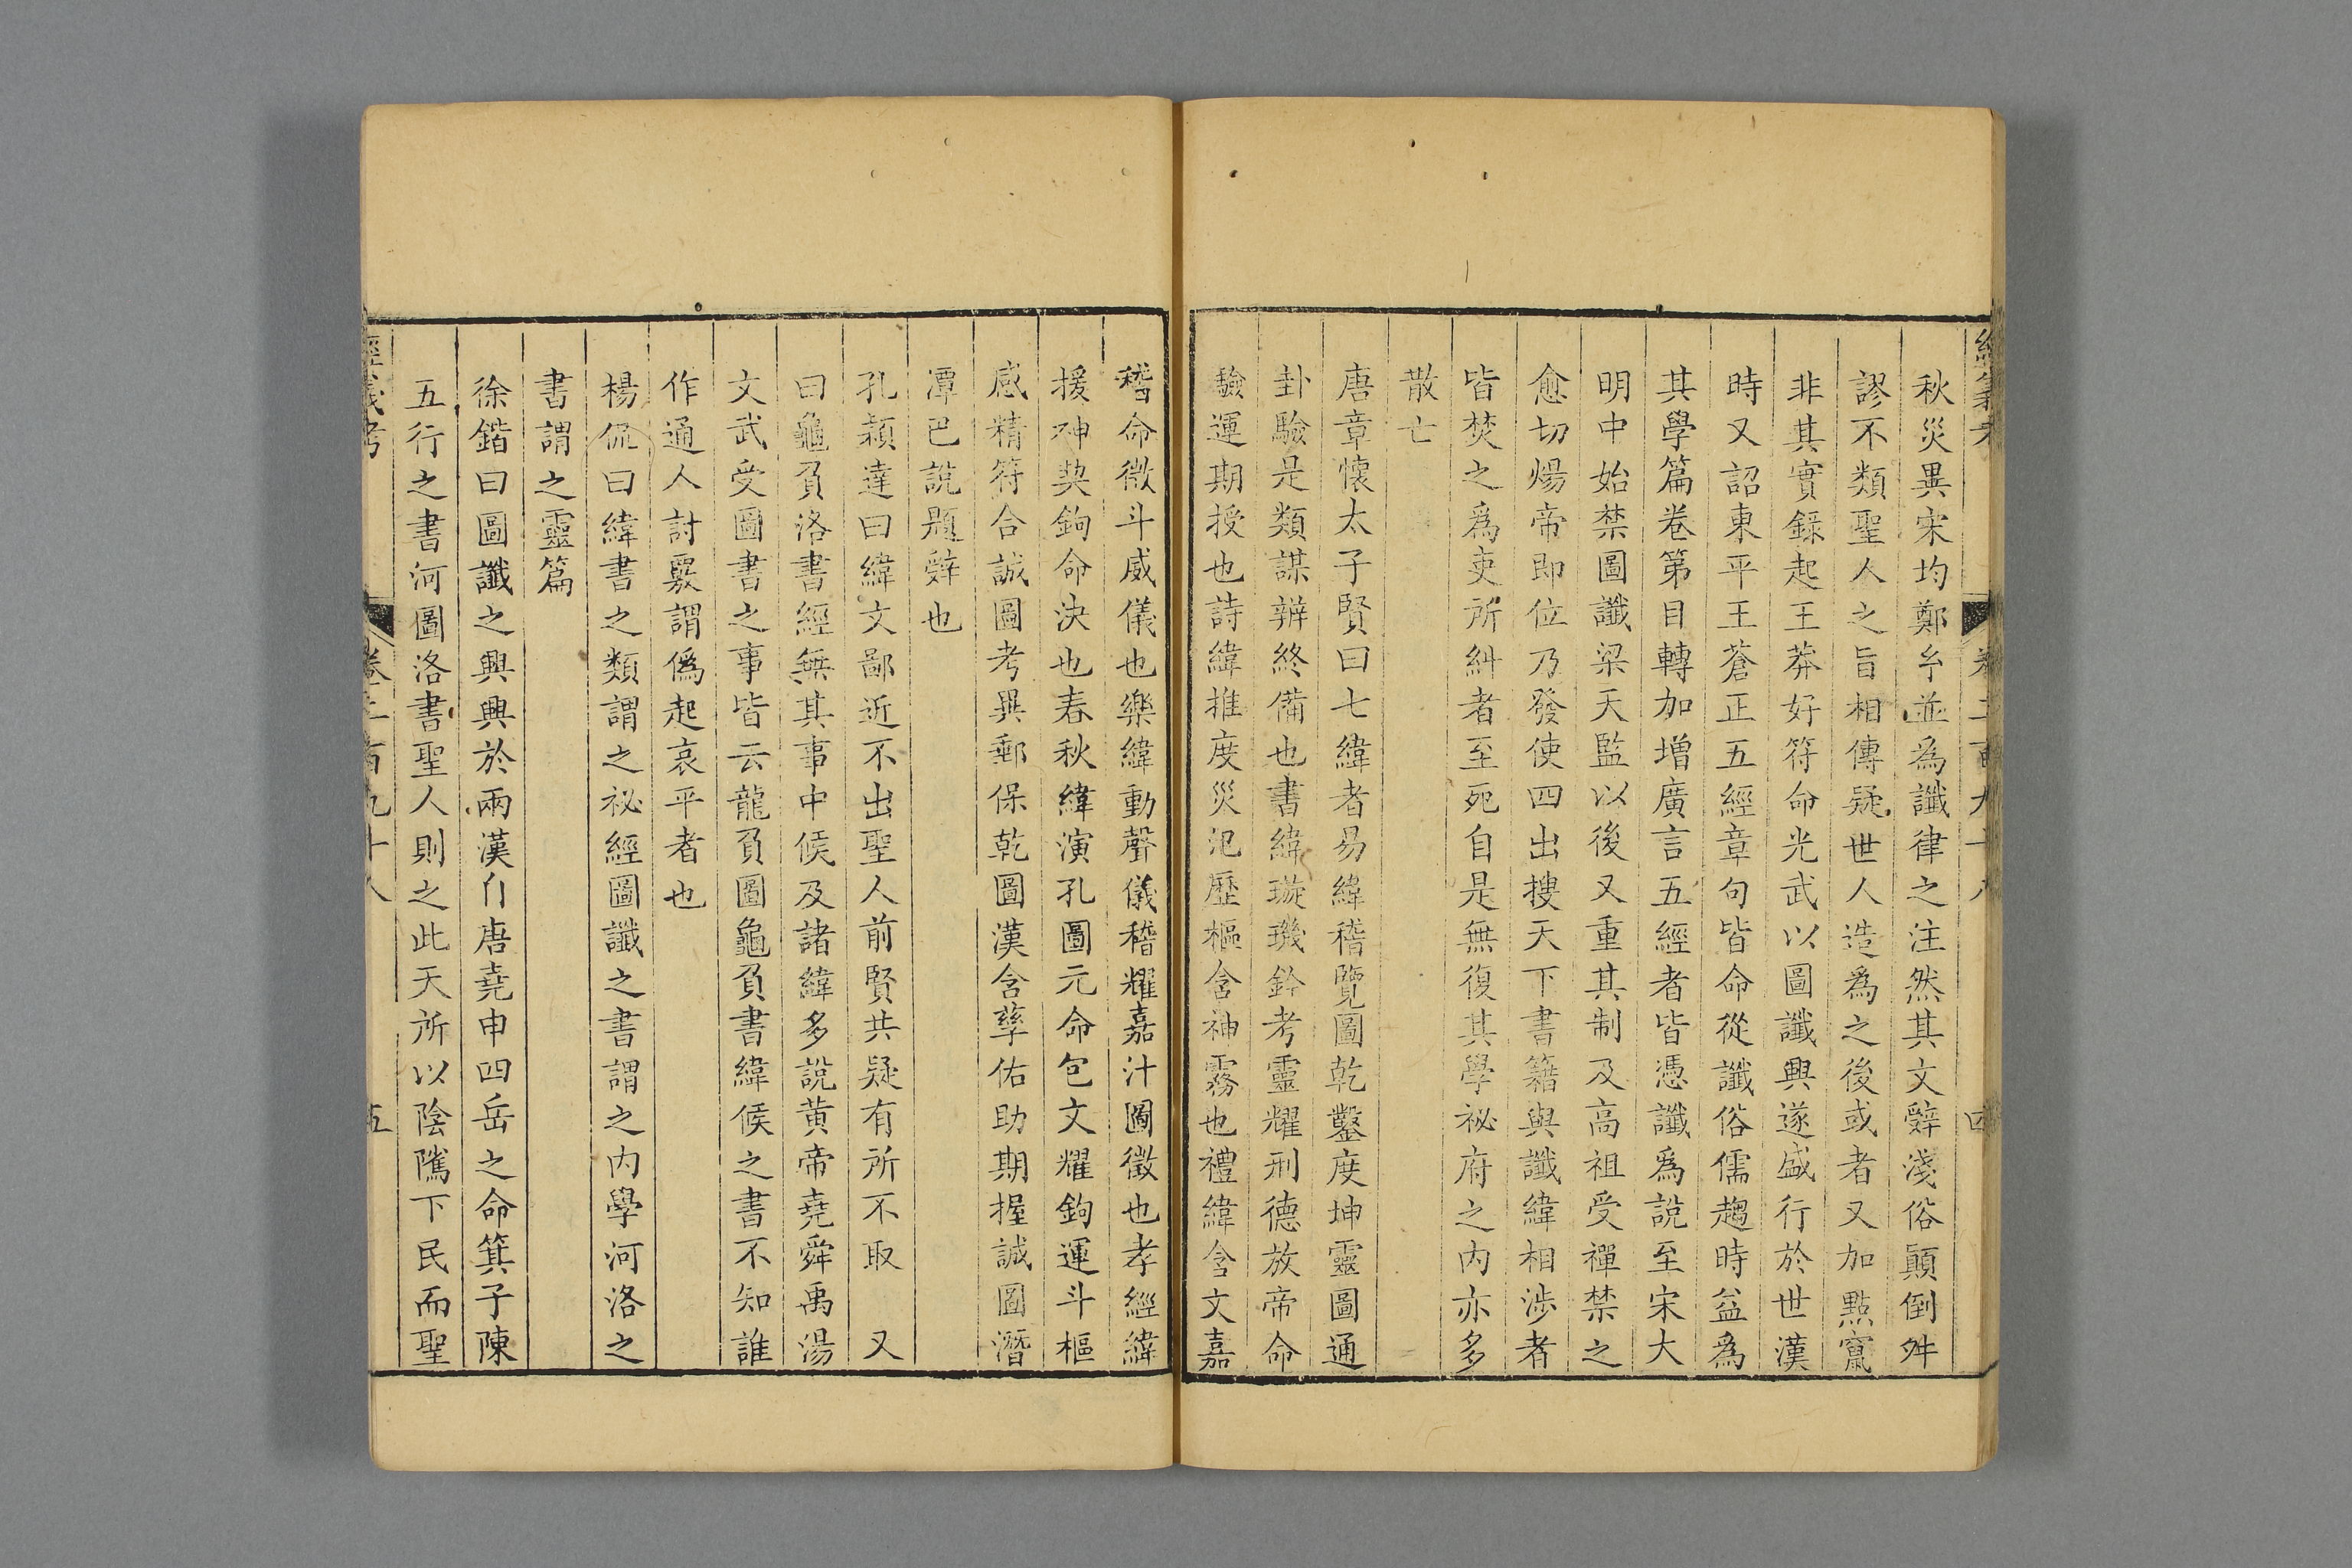 秋災異宋均鄭𠫤並為讖律之注然其文辭淺俗顛倒舛
謬不類聖人之旨相傳疑世人造為之後或者又加點竄
非其實錄起王莽好符命光武以圖讖興遂盛行於世漢
時又詔東平王蒼正五經章句皆命從讖俗儒趨時益為
其學篇卷第目轉加增廣言五經者皆憑讖為說至宋大
明中始禁圖讖梁天監以後又重其制及高祖受禪禁之
愈切煬帝即位乃發使四出搜天下書籍與讖緯相涉者
皆焚之為吏所糾者至死自是無復其學祕府之內亦多
散亡
唐章懷太子賢曰七緯者易緯稽覽圖乾鑿度坤靈圖通
卦驗是類謀辨終備也書緯璇璣鈐考靈耀刑德放帝命
驗運期授也詩緯推度災氾歷樞含神霧也禮緯含文嘉
稽命徵斗威儀也樂緯動聲儀稽耀嘉汁圖徵也孝經緯
援神契鉤命決也春秋緯演孔圖元命包文耀鉤運斗樞
感精符合誠圖考異郵保乾圖漢含孳佑助期握誠圖潛
潭巴說題辭也
孔穎達曰緯文鄙近不出聖人前賢共疑有所不取　又
曰龜負洛書經無其事中候及諸緯多說黃帝堯舜禹湯
文武受圖書之事皆云龍負圖龜負書緯候之書不知誰
作通人討覈謂偽起哀平者也
楊侃曰緯書之類謂之祕經圖讖之書謂之內學河洛之
書謂之靈篇
徐鍇曰圖讖之興興於兩漢們唐堯申四岳之命箕子陳
五行之書河圖洛書聖人則之此天所以陰隲下民而聖
經義考
卷二百九十八
五